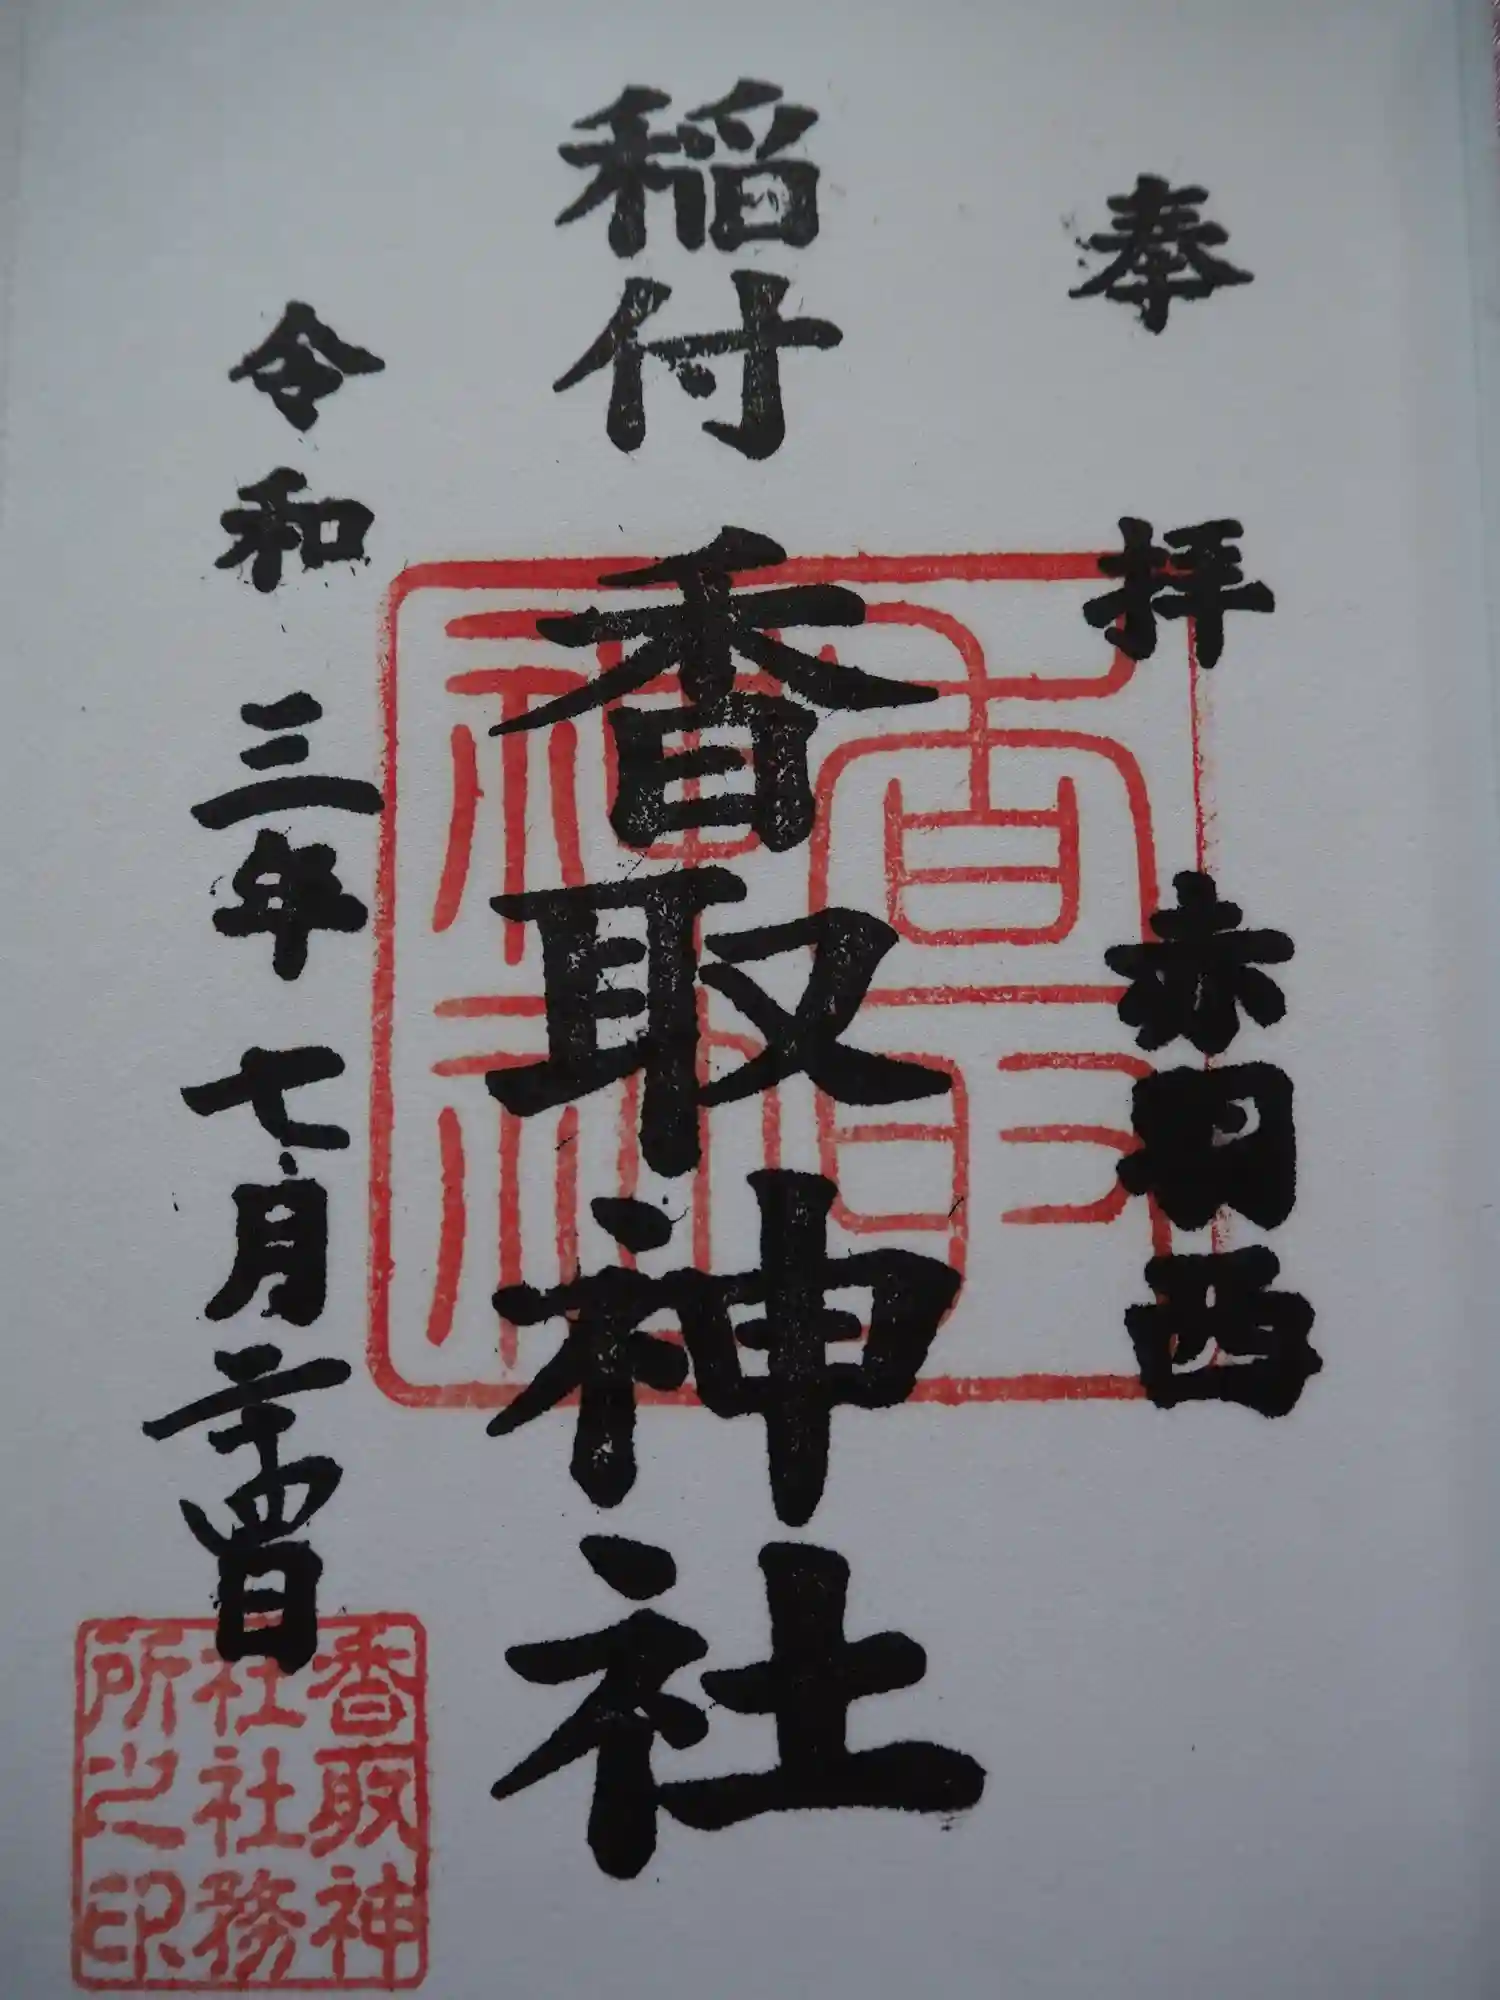 奉拝 赤羽西
稲付香取神社
令和三年七月二十四日
香取神社
香取神
社社務
所之印